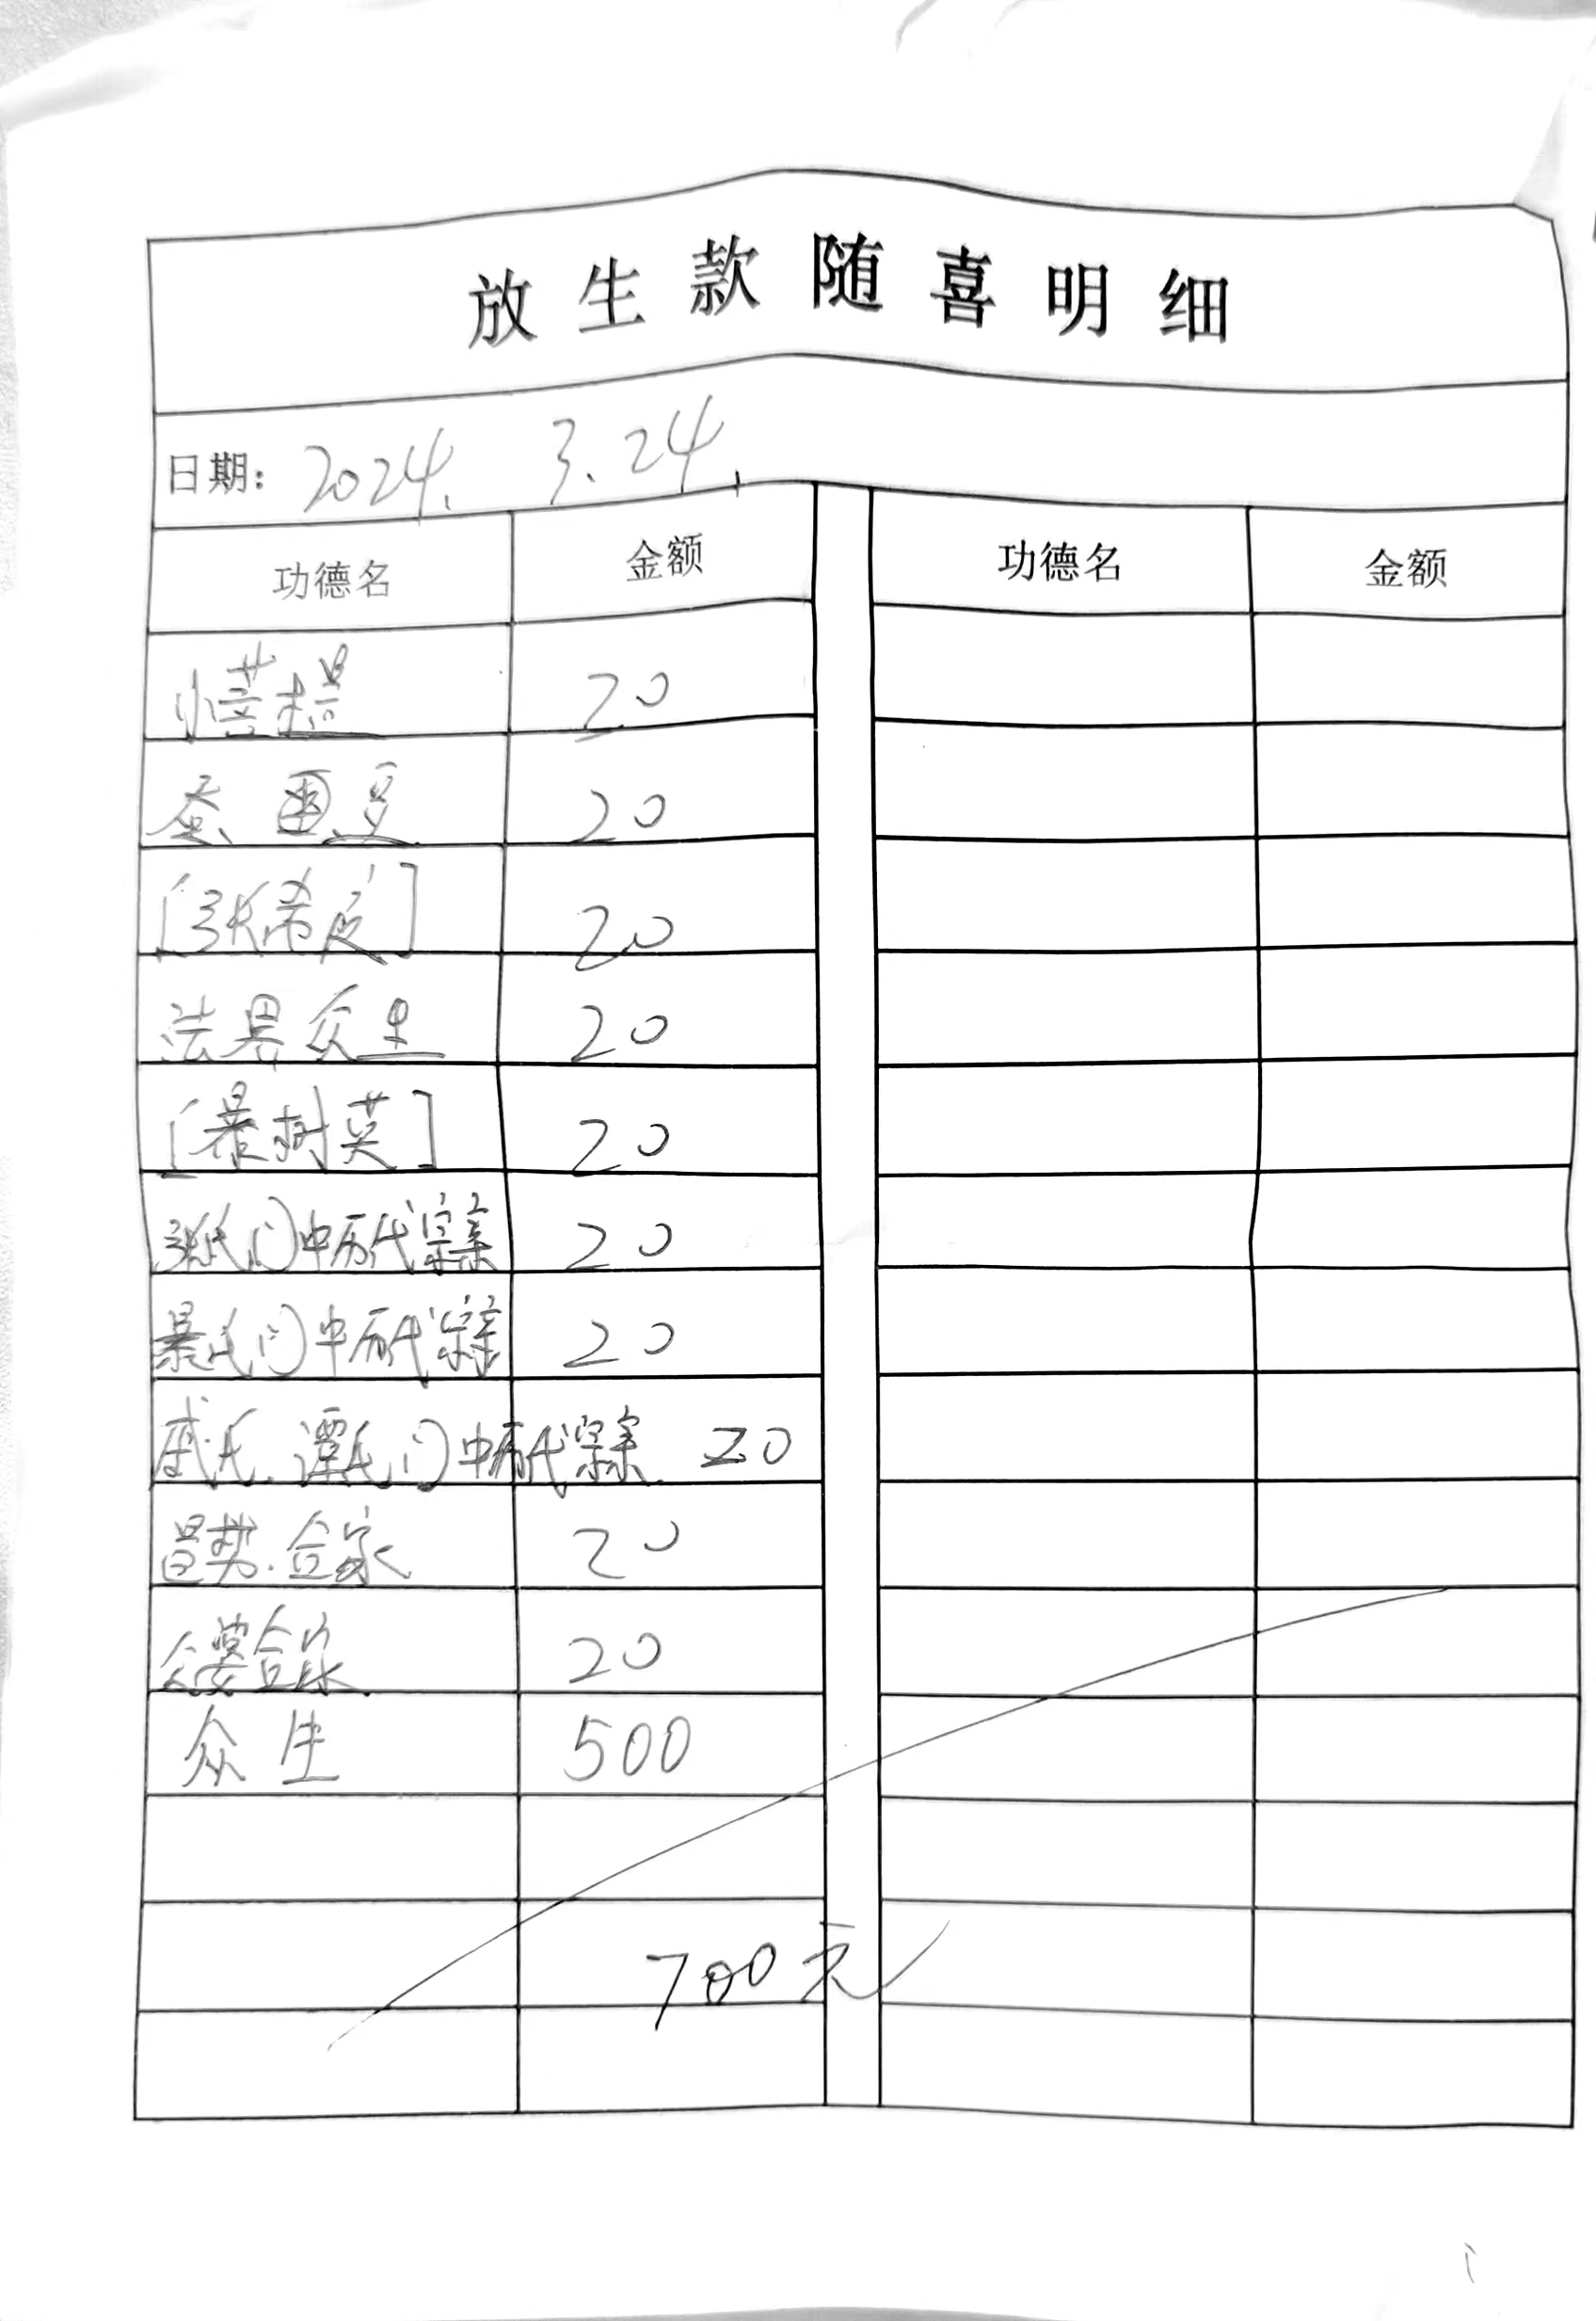 放生款随喜明细
日期: 2024. 3.24.
功德名 金额 功德名 金额
20
20
[张希良] 20
法界众生 20
[暴树英] 20
张氏门中历代宗亲 20
暴氏门中历代宗亲 20
戚氏.谭氏门中历代宗亲 20
合家 20
合家 20
众生 500
700元